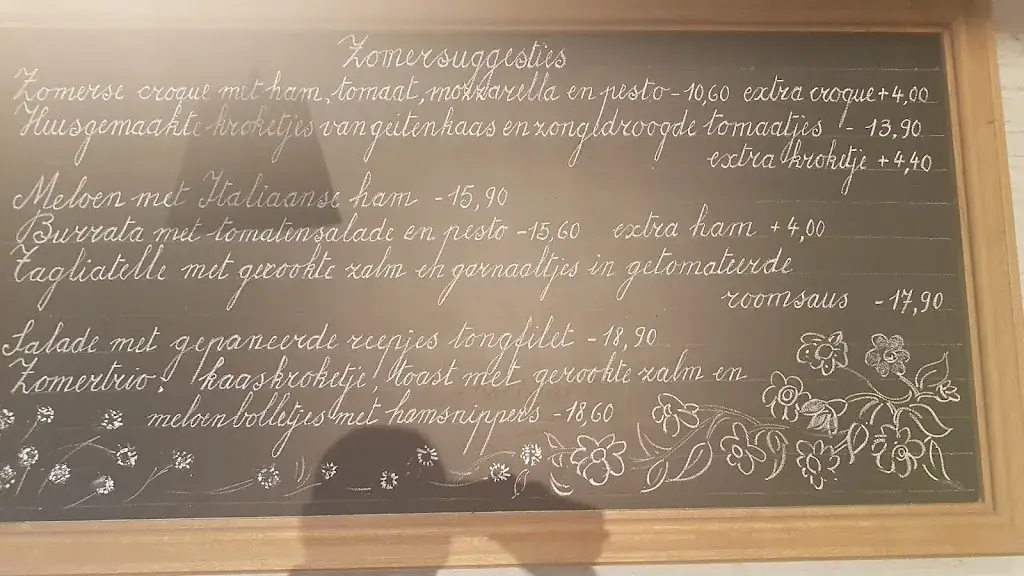 Zomersuggesties
Zomerse croque met ham, tomaat, mozzarella en pesto - 10,60 extra croque + 4,00
Huisgemaakte kroketjes van geitenkaas en zongedroogde tomaatjes - 13,90
extra kroketje + 4,40
Meloen met Italiaanse ham - 15,90
Burrata met tomatensalade en pesto - 15,60 extra ham + 4,00
Tagliatelle met gerookte zalm en garnaaltjes in getomateerde
roomsaus - 17,90
Salade met gepaneerde reepjes tongfilet - 18,90
Zomertrio: kaaskroketje, toast met gerookte zalm en
meloenbolletjes met hamsnippers - 18,60